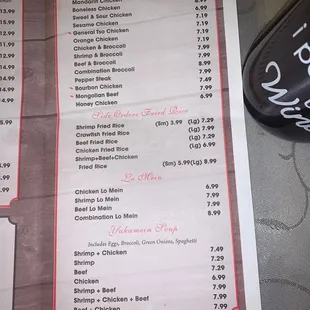 Mandarin Chicken 6.99
Boneless Chicken 6.99
Sweet & Sour Chicken 7.19
Sesame Chicken 7.19
General Tso Chicken 7.19
Orange Chicken 7.19
Chicken & Broccoli 7.19
Shrimp & Broccoli 7.99
Beef & Broccoli 7.99
Combination Broccoli 8.99
Pepper Steak 7.99
Bourbon Chicken 7.49
Mongolian Beef 7.99
Honey Chicken 6.99
Side Orders Fried Rice
Shrimp Fried Rice (Sm) 3.99 (Lg) 7.29
Crawfish Fried Rice (Lg) 7.99
Beef Fried Rice (Lg) 7.29
Chicken Fried Rice (Lg) 6.99
Shrimp+Beef+Chicken
Fried Rice (Sm) 5.99 (Lg) 8.99
Lo Mein
Chicken Lo Mein 6.99
Shrimp Lo Mein 7.99
Beef Lo Mein 7.99
Combination Lo Mein 8.99
Yakamein Soup
Includes Eggs, Broccoli, Green Onions, Spaghetti
Shrimp + Chicken 7.49
Shrimp 7.29
Beef 7.29
Chicken 6.99
Shrimp + Beef 7.99
Shrimp + Chicken + Beef 7.99
Beef + Chicken 7.99